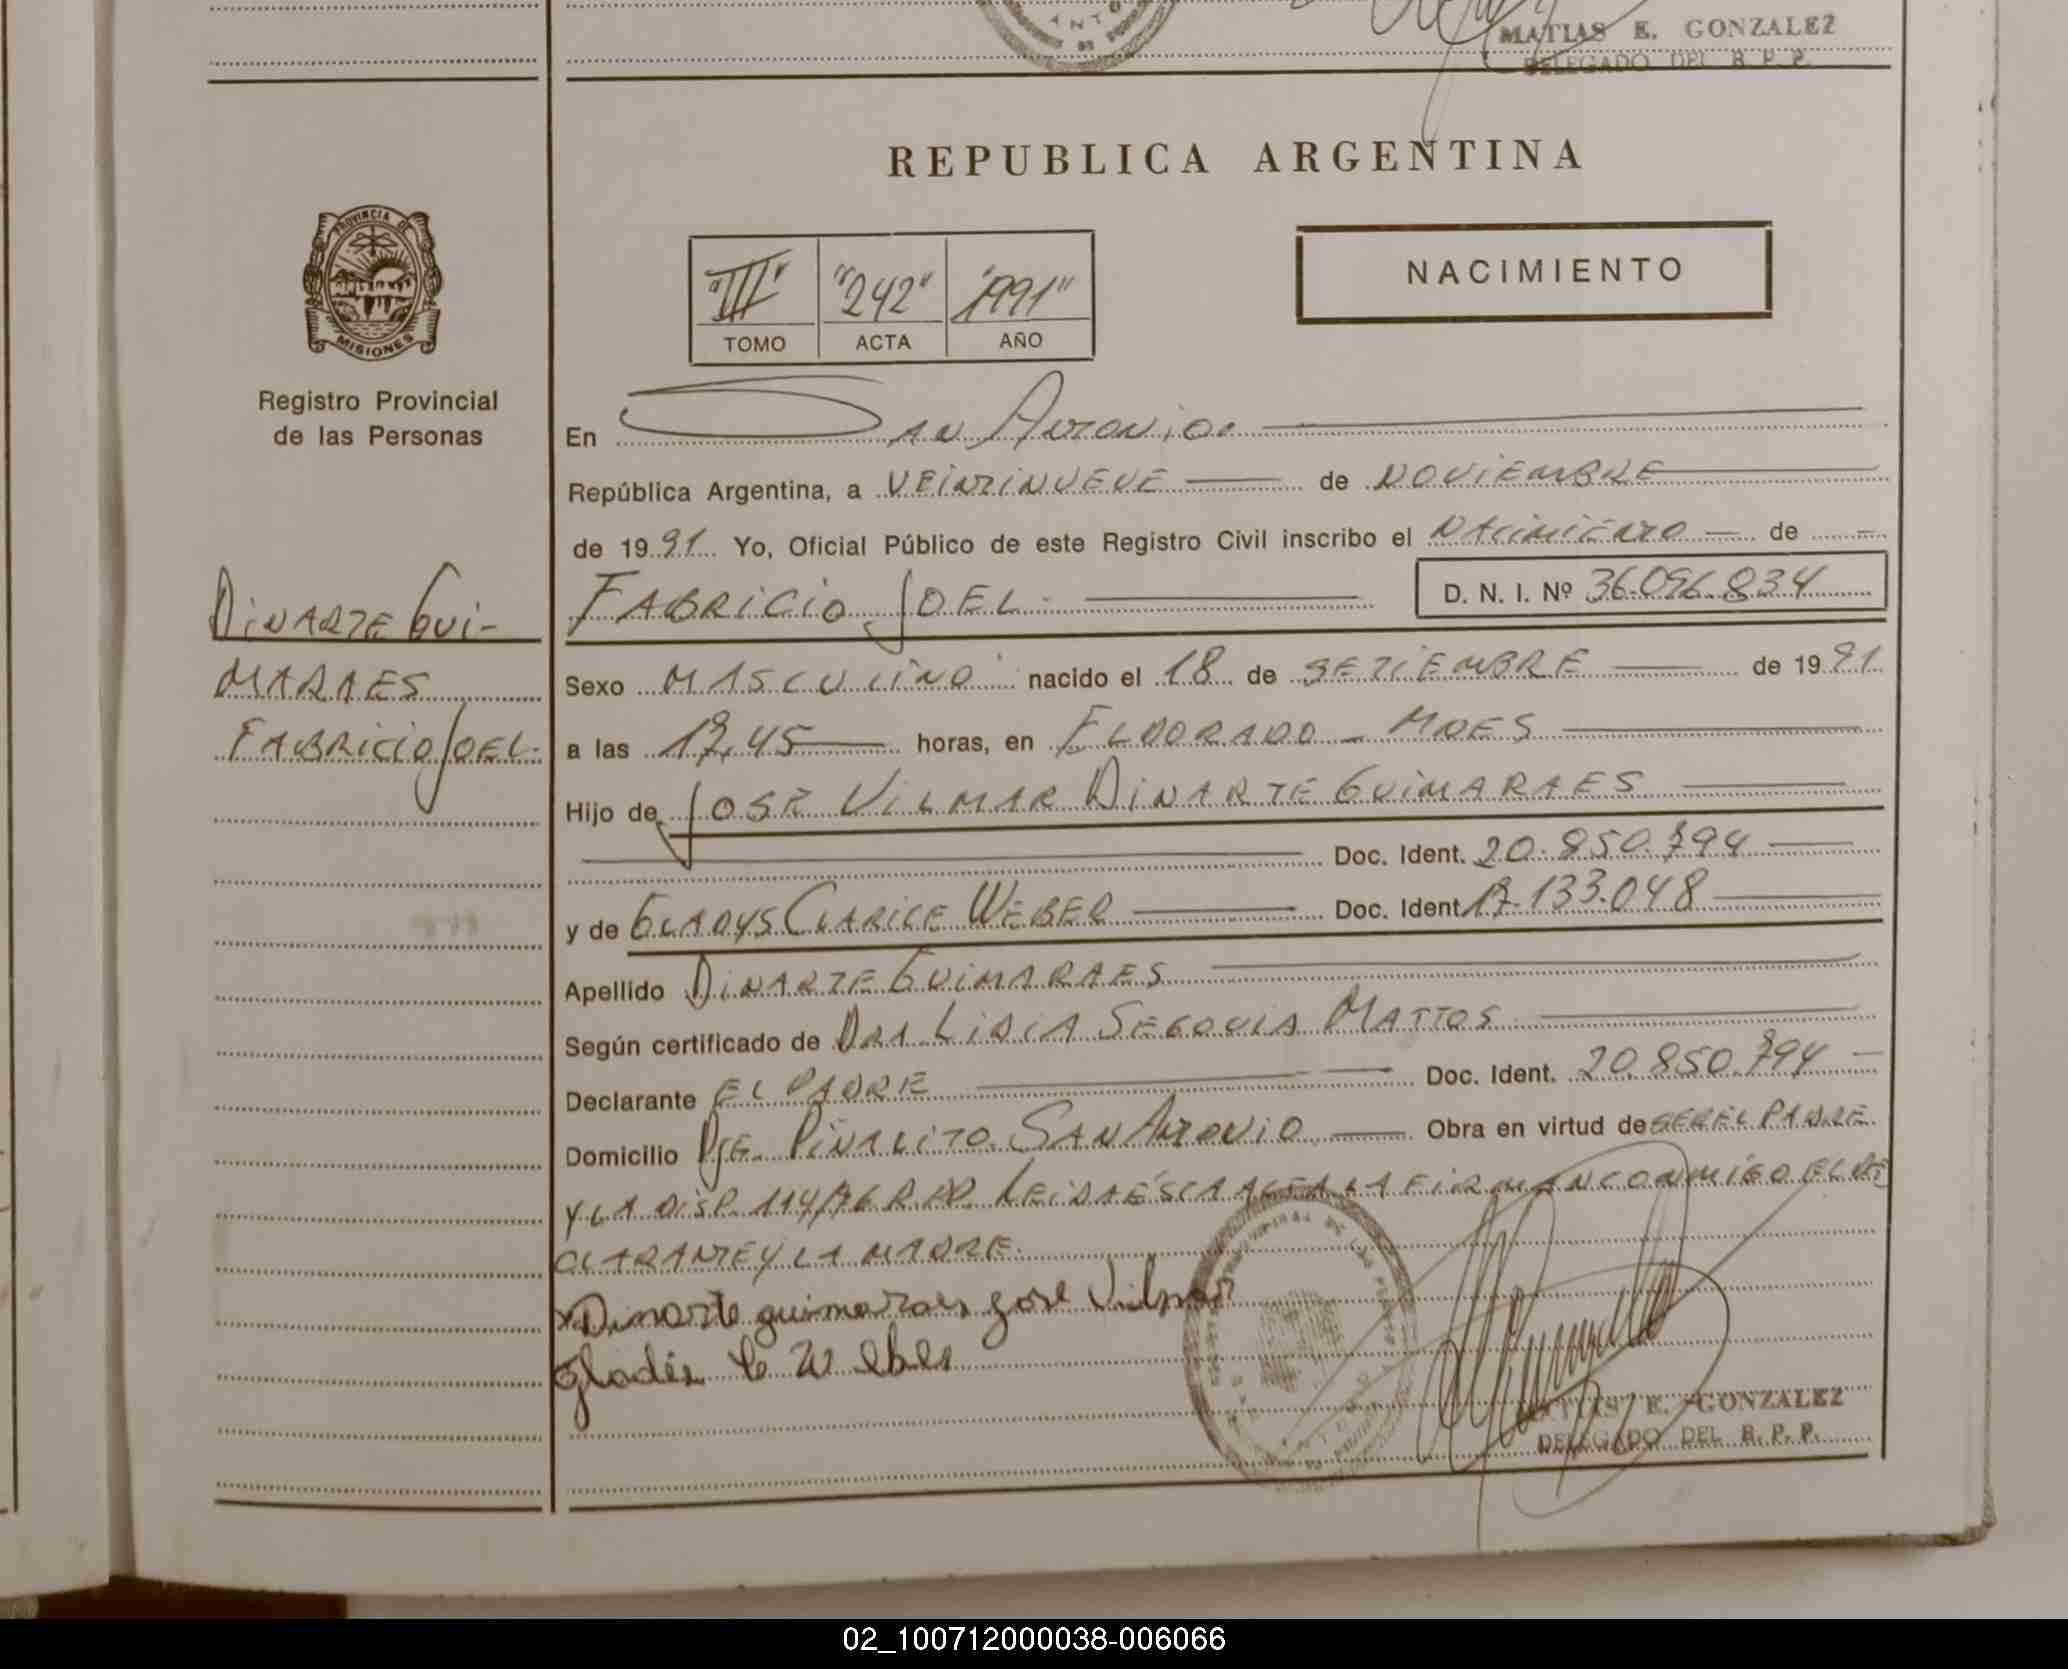 MATIAS E. GONZALEZ
DELEGADO DEL R. P. P.
REPUBLICA ARGENTINA
PROVINCIA DE
MISIONES
Registro Provincial
de las Personas
"III" "242" "1991"
TOMO ACTA AÑO
NACIMIENTO
En SAN ANTONIO.
República Argentina, a VEINTINUEVE de NOVIEMBRE
de 1991. Yo, Oficial Público de este Registro Civil inscribo el NACIMIENTO de
FABRICIO JOEL. D. N. I. Nº 36.096.834
DINARTE GUI-
MARAES
FABRICIO JOEL.
Sexo MASCULINO nacido el 18 de SETIEMBRE de 1991.
a las 17,45 horas, en ELDORADO - MNES
Hijo de JOSE VILMAR DINARTE GUIMARAES
Doc. Ident. 20.850.794
y de GLADYS CLARICE WEBER Doc. Ident. 17.133.048
Apellido DINARTE GUIMARAES
Según certificado de DRA LIDIA SEGOVIA MATTOS
Declarante EL PADRE Doc. Ident. 20.850.794
Domicilio PJE. PIÑALITO SAN ANTONIO Obra en virtud de SER EL PADRE
Y LA DISP. 114/76 R.P.P. LEIDA ÉSTA ACTA LA FIRMAN CONMIGO EL DE
CLARANTE Y LA MADRE.
Dinarte guimaraes jose Vilmar
Gladis C Weber
MATIAS E. GONZALEZ
DELEGADO DEL R. P. P.
02_100712000038-006066